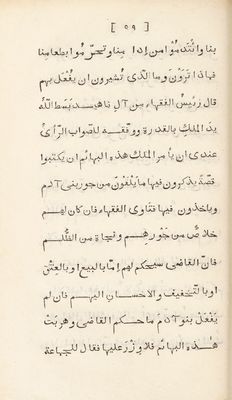 [ ٥٩ ]
بنا وانتدموا من اذا منا وتحرموا بطعامنا
فماذا ترون وما الذى تشيرون ان يفعل بهم
قال رئيس الفقهاء من آل ناهيد بسط الله
يد الملك بالقدرة ووفقه للصواب الرأى
عندى ان يأمر الملك هذه البهائم ان يكتبوا
قصة يذكرون فيها ما يلقون من جور بنى آدم
وياخذون فيها فتاوى الفقهاء فان كان لهم
خلاص من جورهم ونجاة من الظلم
فان القاضى سيحكم لهم إما بالبيع او بالعتق
او بالتخفيف والاحسان اليهم فان لم
يفعل بنو آدم ما حكم القاضى وهربت
هذه البهائم فلا وزر عليها فقال للجماعة